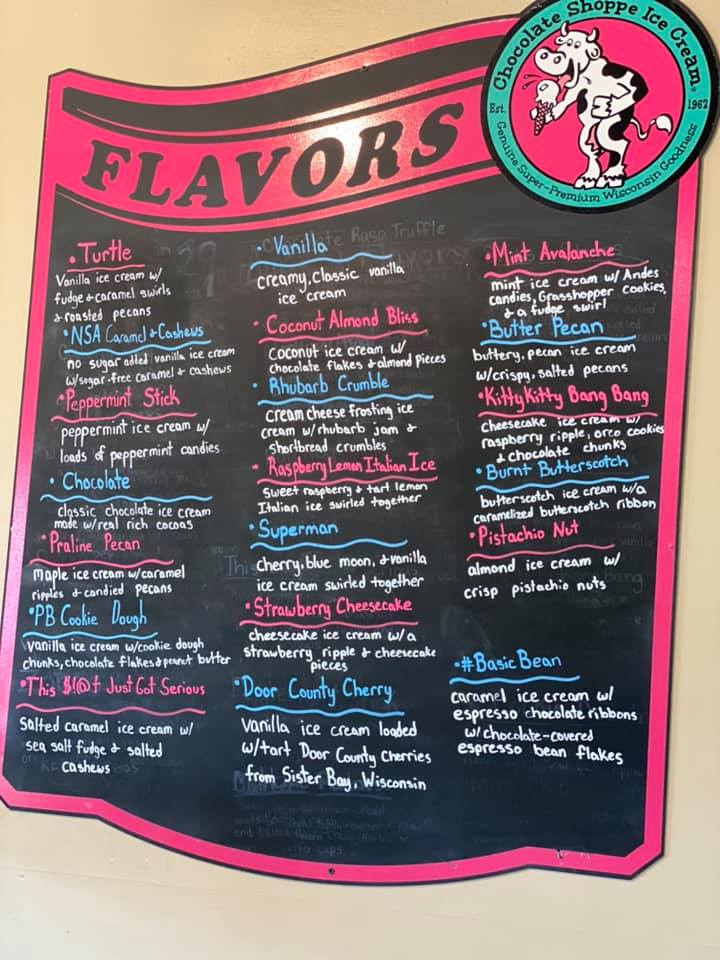 Chocolate Shoppe Ice Cream
Est. 1962
Genuine Super-Premium Wisconsin Goodness
FLAVORS
•Turtle
Vanilla ice cream w/
fudge & caramel swirls
& roasted pecans
•NSA Caramel & Cashews
no sugar added vanilla ice cream
w/sugar-free caramel & cashews
•Peppermint Stick
peppermint ice cream w/
loads of peppermint candies
•Chocolate
classic chocolate ice cream
made w/real rich cocoas
•Praline Pecan
maple ice cream w/caramel
ripples & candied pecans
•PB Cookie Dough
vanilla ice cream w/cookie dough
chunks, chocolate flakes & peanut butter
•This $!@t Just Got Serious
Salted caramel ice cream w/
sea salt fudge & salted
cashews
•Vanilla
creamy, classic vanilla
ice cream
•Coconut Almond Bliss
Coconut ice cream w/
chocolate flakes & almond pieces
•Rhubarb Crumble
cream cheese frosting ice
cream w/rhubarb jam &
shortbread crumbles
•Raspberry Lemon Italian Ice
Sweet raspberry & tart lemon
Italian ice swirled together
•Superman
cherry, blue moon, & vanilla
ice cream swirled together
•Strawberry Cheesecake
cheesecake ice cream w/a
strawberry ripple & cheesecake
pieces
•Door County Cherry
Vanilla ice cream loaded
w/tart Door County Cherries
from Sister Bay, Wisconsin
•Mint Avalanche
mint ice cream w/ Andes
candies, Grasshopper cookies,
& a fudge swirl
•Butter Pecan
buttery, pecan ice cream
w/crispy, salted pecans
•KittyKitty Bang Bang
cheesecake ice cream w/
raspberry ripple, oreo cookies
& chocolate chunks
•Burnt Butterscotch
butterscotch ice cream w/a
caramelized butterscotch ribbon
•Pistachio Nut
almond ice cream w/
crisp pistachio nuts
•#Basic Bean
caramel ice cream w/
espresso chocolate ribbons
w/ chocolate-covered
espresso bean flakes